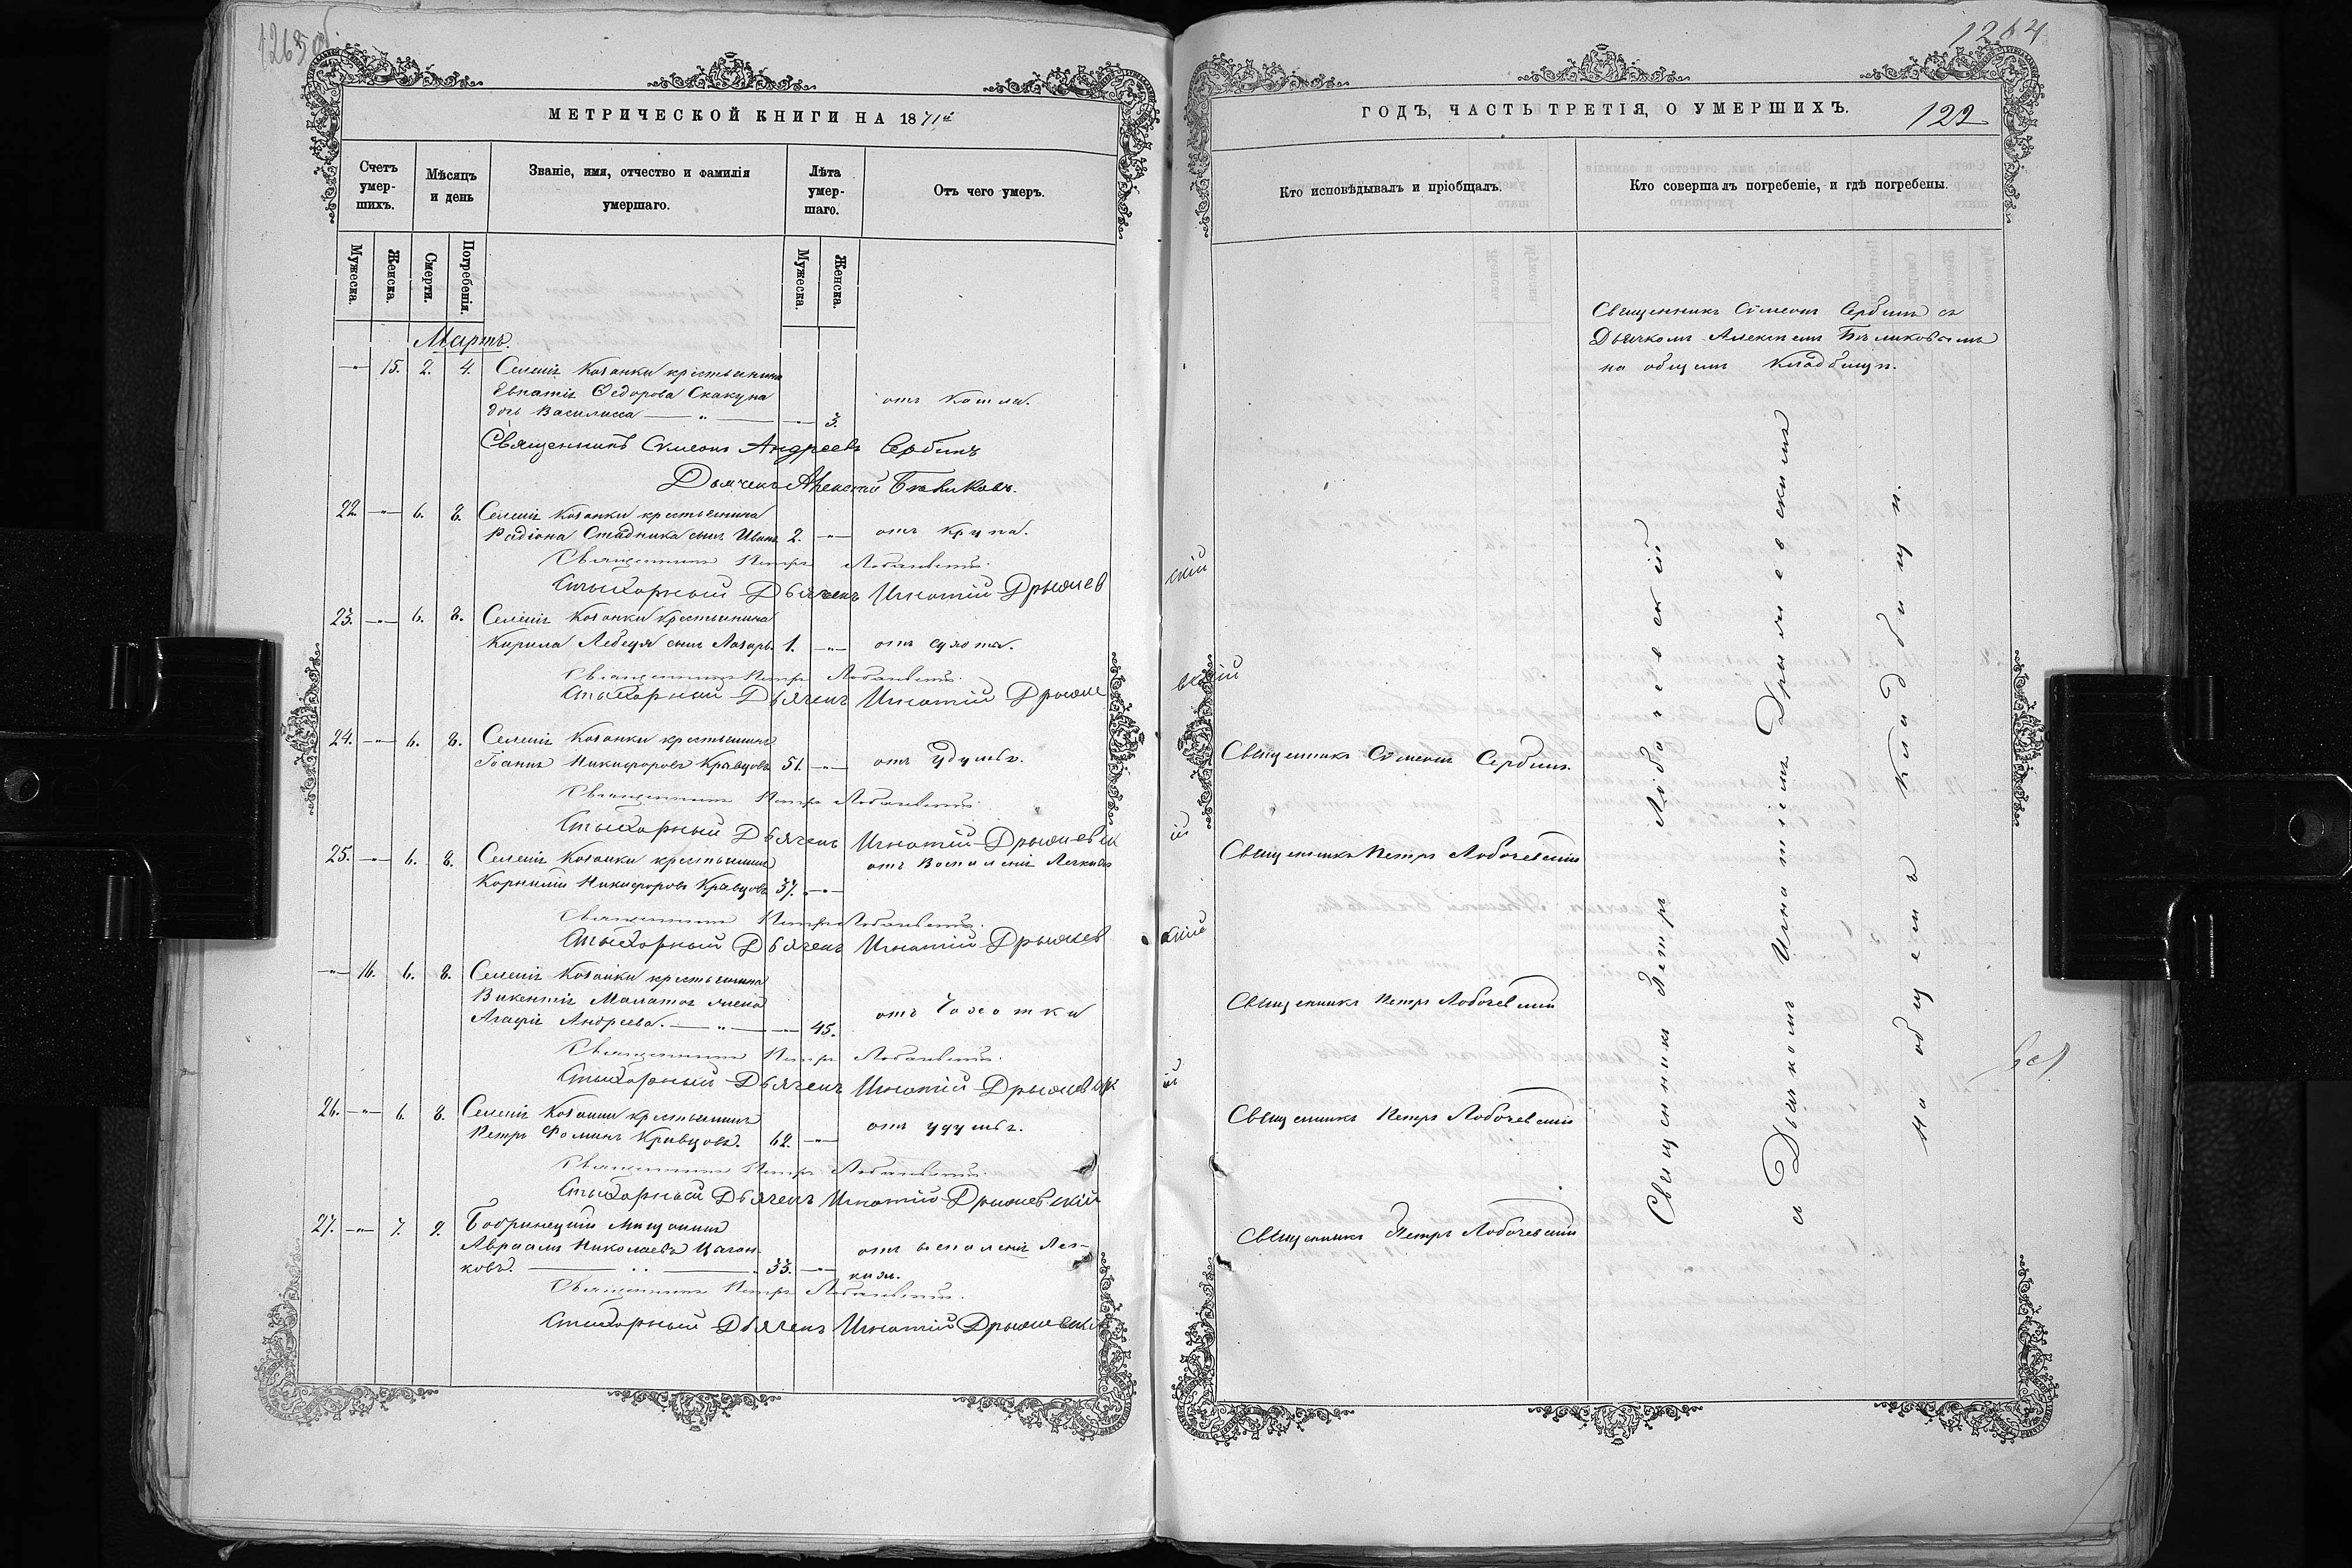 1263об.
МЕТРИЧЕСКОЙ КНИГИ НА 1871й
Счетъ умер-шихъ.
Мѣсяцъ и день
Званіе, имя, отчество и фамилія умершаго.
Лѣта умер-шаго.
Отъ чего умеръ.
Мужеска.
Женска.
Смерти.
Погребенія.
Мужеска
Женска.
Мартъ.
15. 2. 4. Селенія Казанки крестьянина
Евпатія Ѳедорова Скакуна
дочь Василисса — " — 3. отъ кашля.
Священникъ Симеонъ Андреевъ Сербинъ
Дьячекъ Алексѣй Бѣликовъ.
22. — " — 6. 8. Селенія Казанки крестьянина
Радіона Стадника сынъ Иванъ 2. — " — отъ крупа.
Священникъ Петръ Лобачевскій.
Стыхарный Дьячекъ Игнатій Дрыжлевскій
23. — " — 6. 8. Селенія Казанки крестьянина
Кирила Лебедя сынъ Лазарь 1. — " — отъ сухотъ.
Священникъ Петръ Лобачевскій.
Стыхарный Дьячекъ Игнатій Дрыжлевскій
24. — " — 6. 8. Селенія Казанки крестьянинъ
Іоаннъ Никифоровъ Кравцовъ 51. — " — отъ удушья.
Священникъ Петръ Лобачевскій.
Стыхарный Дьячекъ Игнатій Дрыжлевскій
25. — " — 6. 8. Селенія Казанки крестьянинъ отъ Воспаленія Легкихъ
Корнилій Никифоровъ Кравцовъ 37. — " —
Священникъ Петръ Лобачевскій.
Стыхарный Дьячекъ Игнатій Дрыжлевскій
— " — 16. 6. 8. Селенія Казанки крестьянина
Викентія жена
Агафія Андреева. — " — 45. отъ Чахотки
Священникъ Петръ Лобачевскій.
Стыхарный Дьячекъ Игнатій Дрыжлевскій
26. — " — 6. 8. Селенія Казанки крестьянинъ
Петръ Фоминъ Кравцовъ. 62. — " — отъ удушья.
Священникъ Петръ Лобачевскій.
Стыхарный Дьячекъ Игнатій Дрыжлевскій
27. — " — 7. 9. Бобринецкій Мищанинъ
Авраамъ Николаевъ Цыган-
ковъ. 33. — " — отъ воспаленія Лег-
кихъ.
Священникъ Петръ Лобачевскій.
Стыхарный Дьячекъ Игнатій Дрыжлевскій
1264
ГОДЪ, ЧАСТЬ ТРЕТІЯ, О УМЕРШИХЪ.
122
Кто исповѣдывалъ и пріобщалъ.
Кто совершалъ погребеніе, и гдѣ погребены.
Священникъ Сѵмеонъ Сербинъ съ
Дьячкомъ Алексѣемъ Бѣликовымъ
на общемъ кладбищѣ.
Священникъ Сѵмеонъ Сербинъ.
Священникъ Петръ Лобачевскій
Священникъ Петръ Лобачевскій
Священникъ Петръ Лобачевскій
Священникъ Петръ Лобачевскій
Священникъ Петръ Лобачевскій
съ Дьячкомъ Игнатіемъ Дрыжлевскимъ
на общемъ кладбищѣ.